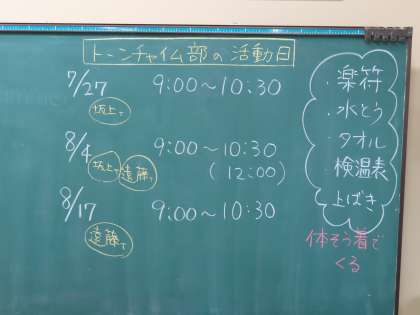 トーンチャイム部の活動日
7/27 9:00〜10:30
坂上て
8/4 9:00〜10:30
坂上て 遠藤て (12:00)
8/17 9:00〜10:30
遠藤て
・楽符
・水とう
・タオル
・検温表
・上ばき
体そう着で
くる